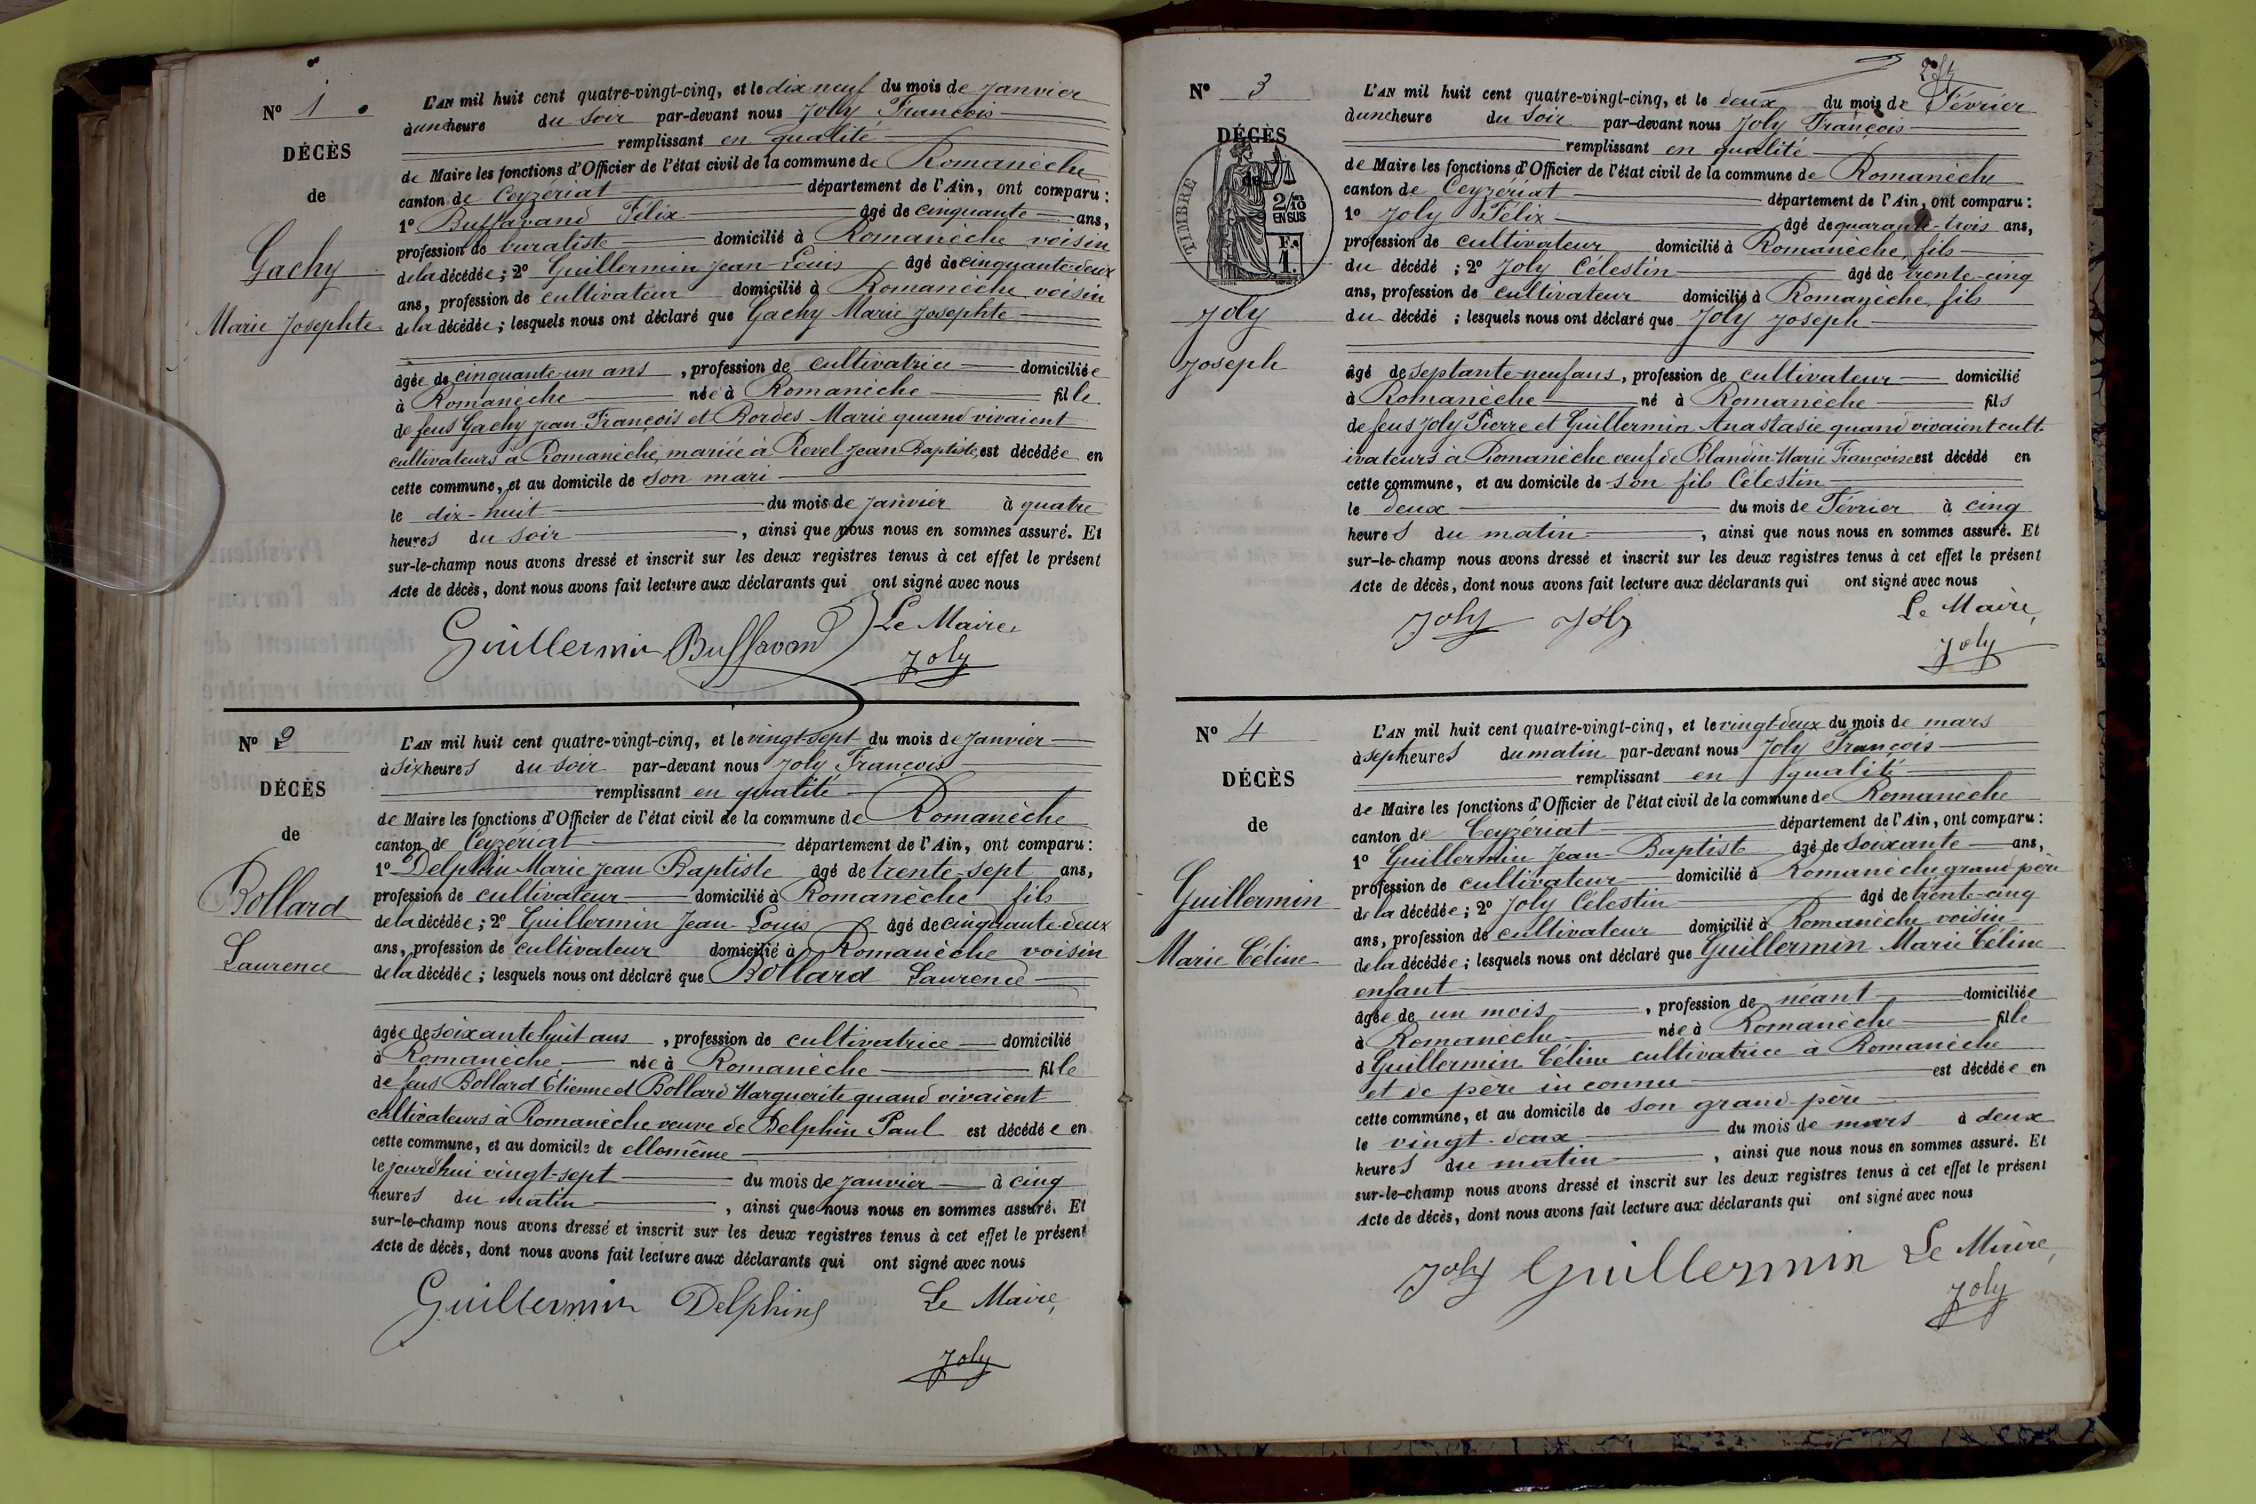 N° 1
DÉCÈS
de
Gachy
Marie Josephte
L'AN mil huit cent quatre-vingt-cinq, et le dix neuf du mois de Janvier
à une heure du soir par-devant nous Joly François
remplissant en qualité
de Maire les fonctions d'Officier de l'état civil de la commune de Romanèche
canton de Ceyzériat département de l'Ain, ont comparu :
1° Buffavand Félix âgé de cinquante ans,
profession de buraliste domicilié à Romanèche voisin
de la décédée ; 2° Guillermin Jean-Louis âgé de cinquante-deux
ans, profession de cultivateur domicilié à Romanèche voisin
de la décédée ; lesquels nous ont déclaré que Gachy Marie Josephte
âgée de cinquante-un ans, profession de cultivatrice domiciliée
à Romanèche née à Romanèche fille
de feus Gachy Jean-François et Bordes Marie quand vivaient
cultivateurs à Romanèche, mariée à Revel Jean Baptiste, est décédée en
cette commune, et au domicile de son mari
le dix-huit du mois de Janvier à quatre
heures du soir, ainsi que nous nous en sommes assuré. Et
sur-le-champ nous avons dressé et inscrit sur les deux registres tenus à cet effet le présent
Acte de décès, dont nous avons fait lecture aux déclarants qui ont signé avec nous
Guillermin Buffavand Le Maire,
Joly
N° 2
DÉCÈS
de
Bollard
Laurence
L'AN mil huit cent quatre-vingt-cinq, et le vingt-sept du mois de Janvier
à six heures du soir par-devant nous Joly François
remplissant en qualité
de Maire les fonctions d'Officier de l'état civil de la commune de Romanèche
canton de Ceyzériat département de l'Ain, ont comparu :
1° Delphin Marie Jean Baptiste âgé de trente-sept ans,
profession de cultivateur domicilié à Romanèche fils
de la décédée ; 2° Guillermin Jean-Louis âgé de cinquante-deux
ans, profession de cultivateur domicilié à Romanèche voisin
de la décédée ; lesquels nous ont déclaré que Bollard Laurence
âgée de soixante huit ans, profession de cultivatrice domicilié
à Romanèche née à Romanèche fille
de feus Bollard Étienne et Bollard Marguerite quand vivaient
cultivateurs à Romanèche veuve de Delphin Paul est décédée en
cette commune, et au domicile de ellemême
le jourd'hui vingt-sept du mois de Janvier à cinq
heures du matin, ainsi que nous nous en sommes assuré. Et
sur-le-champ nous avons dressé et inscrit sur les deux registres tenus à cet effet le présent
Acte de décès, dont nous avons fait lecture aux déclarants qui ont signé avec nous
Guillermin Delphin Le Maire,
Joly
N° 3
DÉCÈS
de
TIMBRE
2/10
EN SUS
F.
1.
Joly
Joseph
L'AN mil huit cent quatre-vingt-cinq, et le deux du mois de Février
à une heure du soir par-devant nous Joly François
remplissant en qualité
de Maire les fonctions d'Officier de l'état civil de la commune de Romanèche
canton de Ceyzériat département de l'Ain, ont comparu :
1° Joly Félix âgé de quarante-trois ans,
profession de cultivateur domicilié à Romanèche, fils
du décédé ; 2° Joly Célestin âgé de trente-cinq
ans, profession de cultivateur domicilié à Romanèche, fils
du décédé ; lesquels nous ont déclaré que Joly Joseph
âgé de septante-neuf ans, profession de cultivateur domicilié
à Romanèche né à Romanèche fils
de feus Joly Pierre et Guillermin Anastasie quand vivaient cult-
ivateurs à Romanèche veuf de Blandin Marie Françoise est décédé en
cette commune, et au domicile de son fils Célestin
le deux du mois de Février à cinq
heures du matin, ainsi que nous nous en sommes assuré. Et
sur-le-champ nous avons dressé et inscrit sur les deux registres tenus à cet effet le présent
Acte de décès, dont nous avons fait lecture aux déclarants qui ont signé avec nous
Joly Joly Le Maire,
Joly
N° 4
DÉCÈS
de
Guillermin
Marie Céline
L'AN mil huit cent quatre-vingt-cinq, et le vingt-deux du mois de mars
à sept heures du matin par-devant nous Joly François
remplissant en qualité
de Maire les fonctions d'Officier de l'état civil de la commune de Romanèche
canton de Ceyzériat département de l'Ain, ont comparu :
1° Guillermin Jean-Baptiste âgé de soixante ans,
profession de cultivateur domicilié à Romanèche grand père
de la décédée ; 2° Joly Célestin âgé de trente-cinq
ans, profession de cultivateur domicilié à Romanèche voisin
de la décédée ; lesquels nous ont déclaré que Guillermin Marie Céline
enfant
âgée de un mois, profession de néant domiciliée
à Romanèche née à Romanèche fille
d Guillermin Céline cultivatrice à Romanèche
et de père inconnu est décédée en
cette commune, et au domicile de son grand père
le vingt-deux du mois de mars à deux
heures du matin, ainsi que nous nous en sommes assuré. Et
sur-le-champ nous avons dressé et inscrit sur les deux registres tenus à cet effet le présent
Acte de décès, dont nous avons fait lecture aux déclarants qui ont signé avec nous
Joly Guillermin Le Maire,
Joly